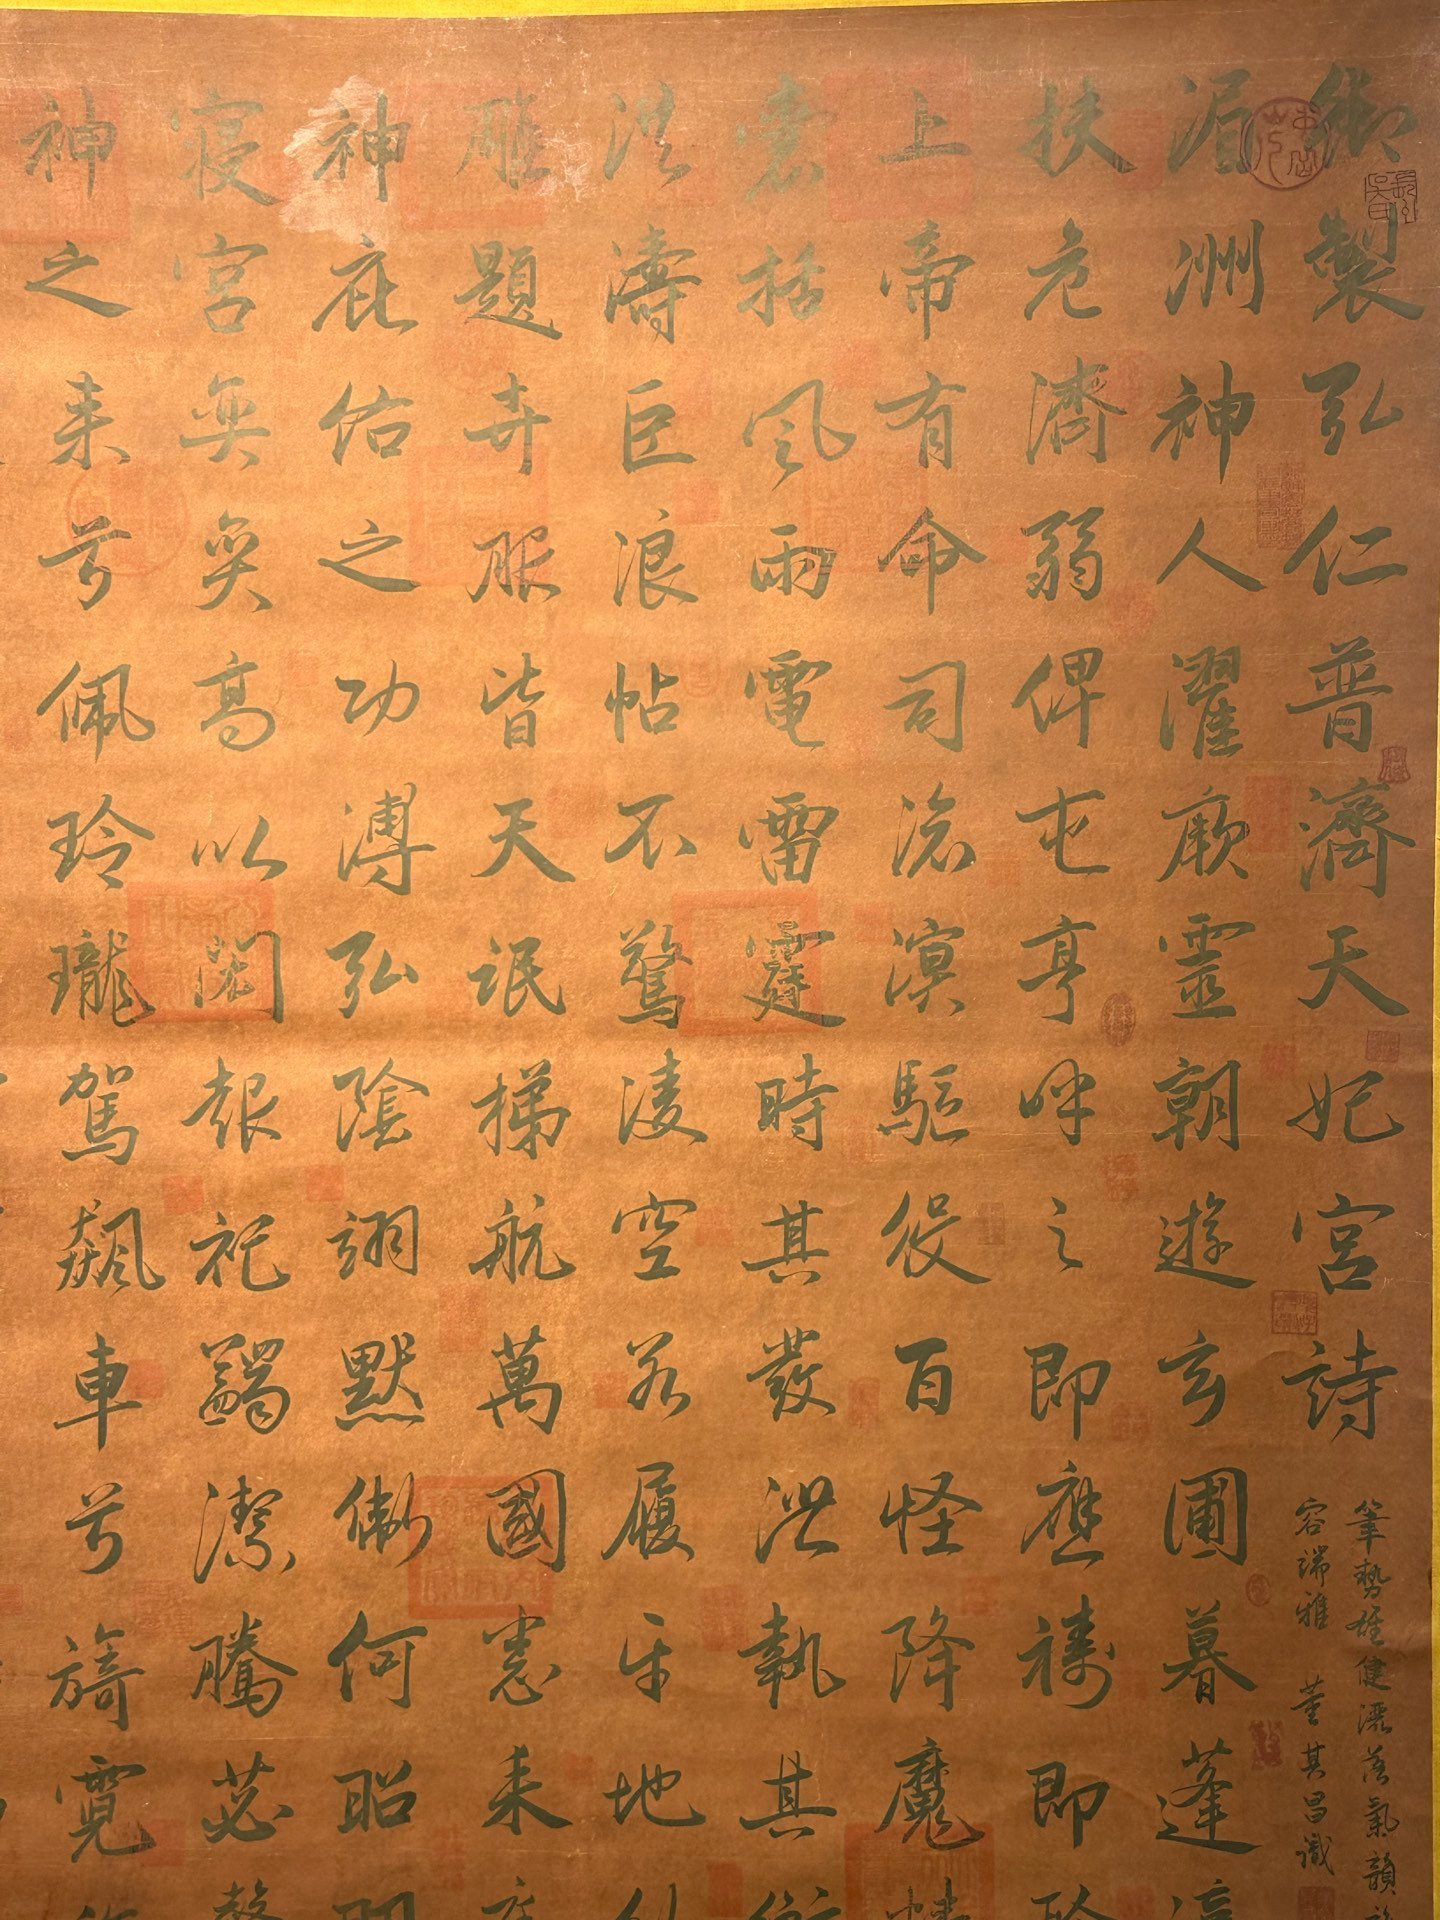 御製弘仁普濟天妃宮詩
筆勢雄健灑落氣韻
容端雅 董其昌識
湄洲神人濯厥靈朝遊玄圃暮蓬瀛
扶危濟弱俾屯亨呼之即應禱即聆
上帝有命司滄溟驅役百怪降魔
囊括風雨電雷霆時其發泄執其衡
洪濤巨浪帖不驚凌空若履平地
雕題卉服皆天氓梯航萬國悉來庭
神庇佑之功溥弘陰翊默衛何昭明
寢宮奕奕高以閎報祀蠲潔騰苾馨
神之來兮佩玲瓏駕飆車兮旖霓